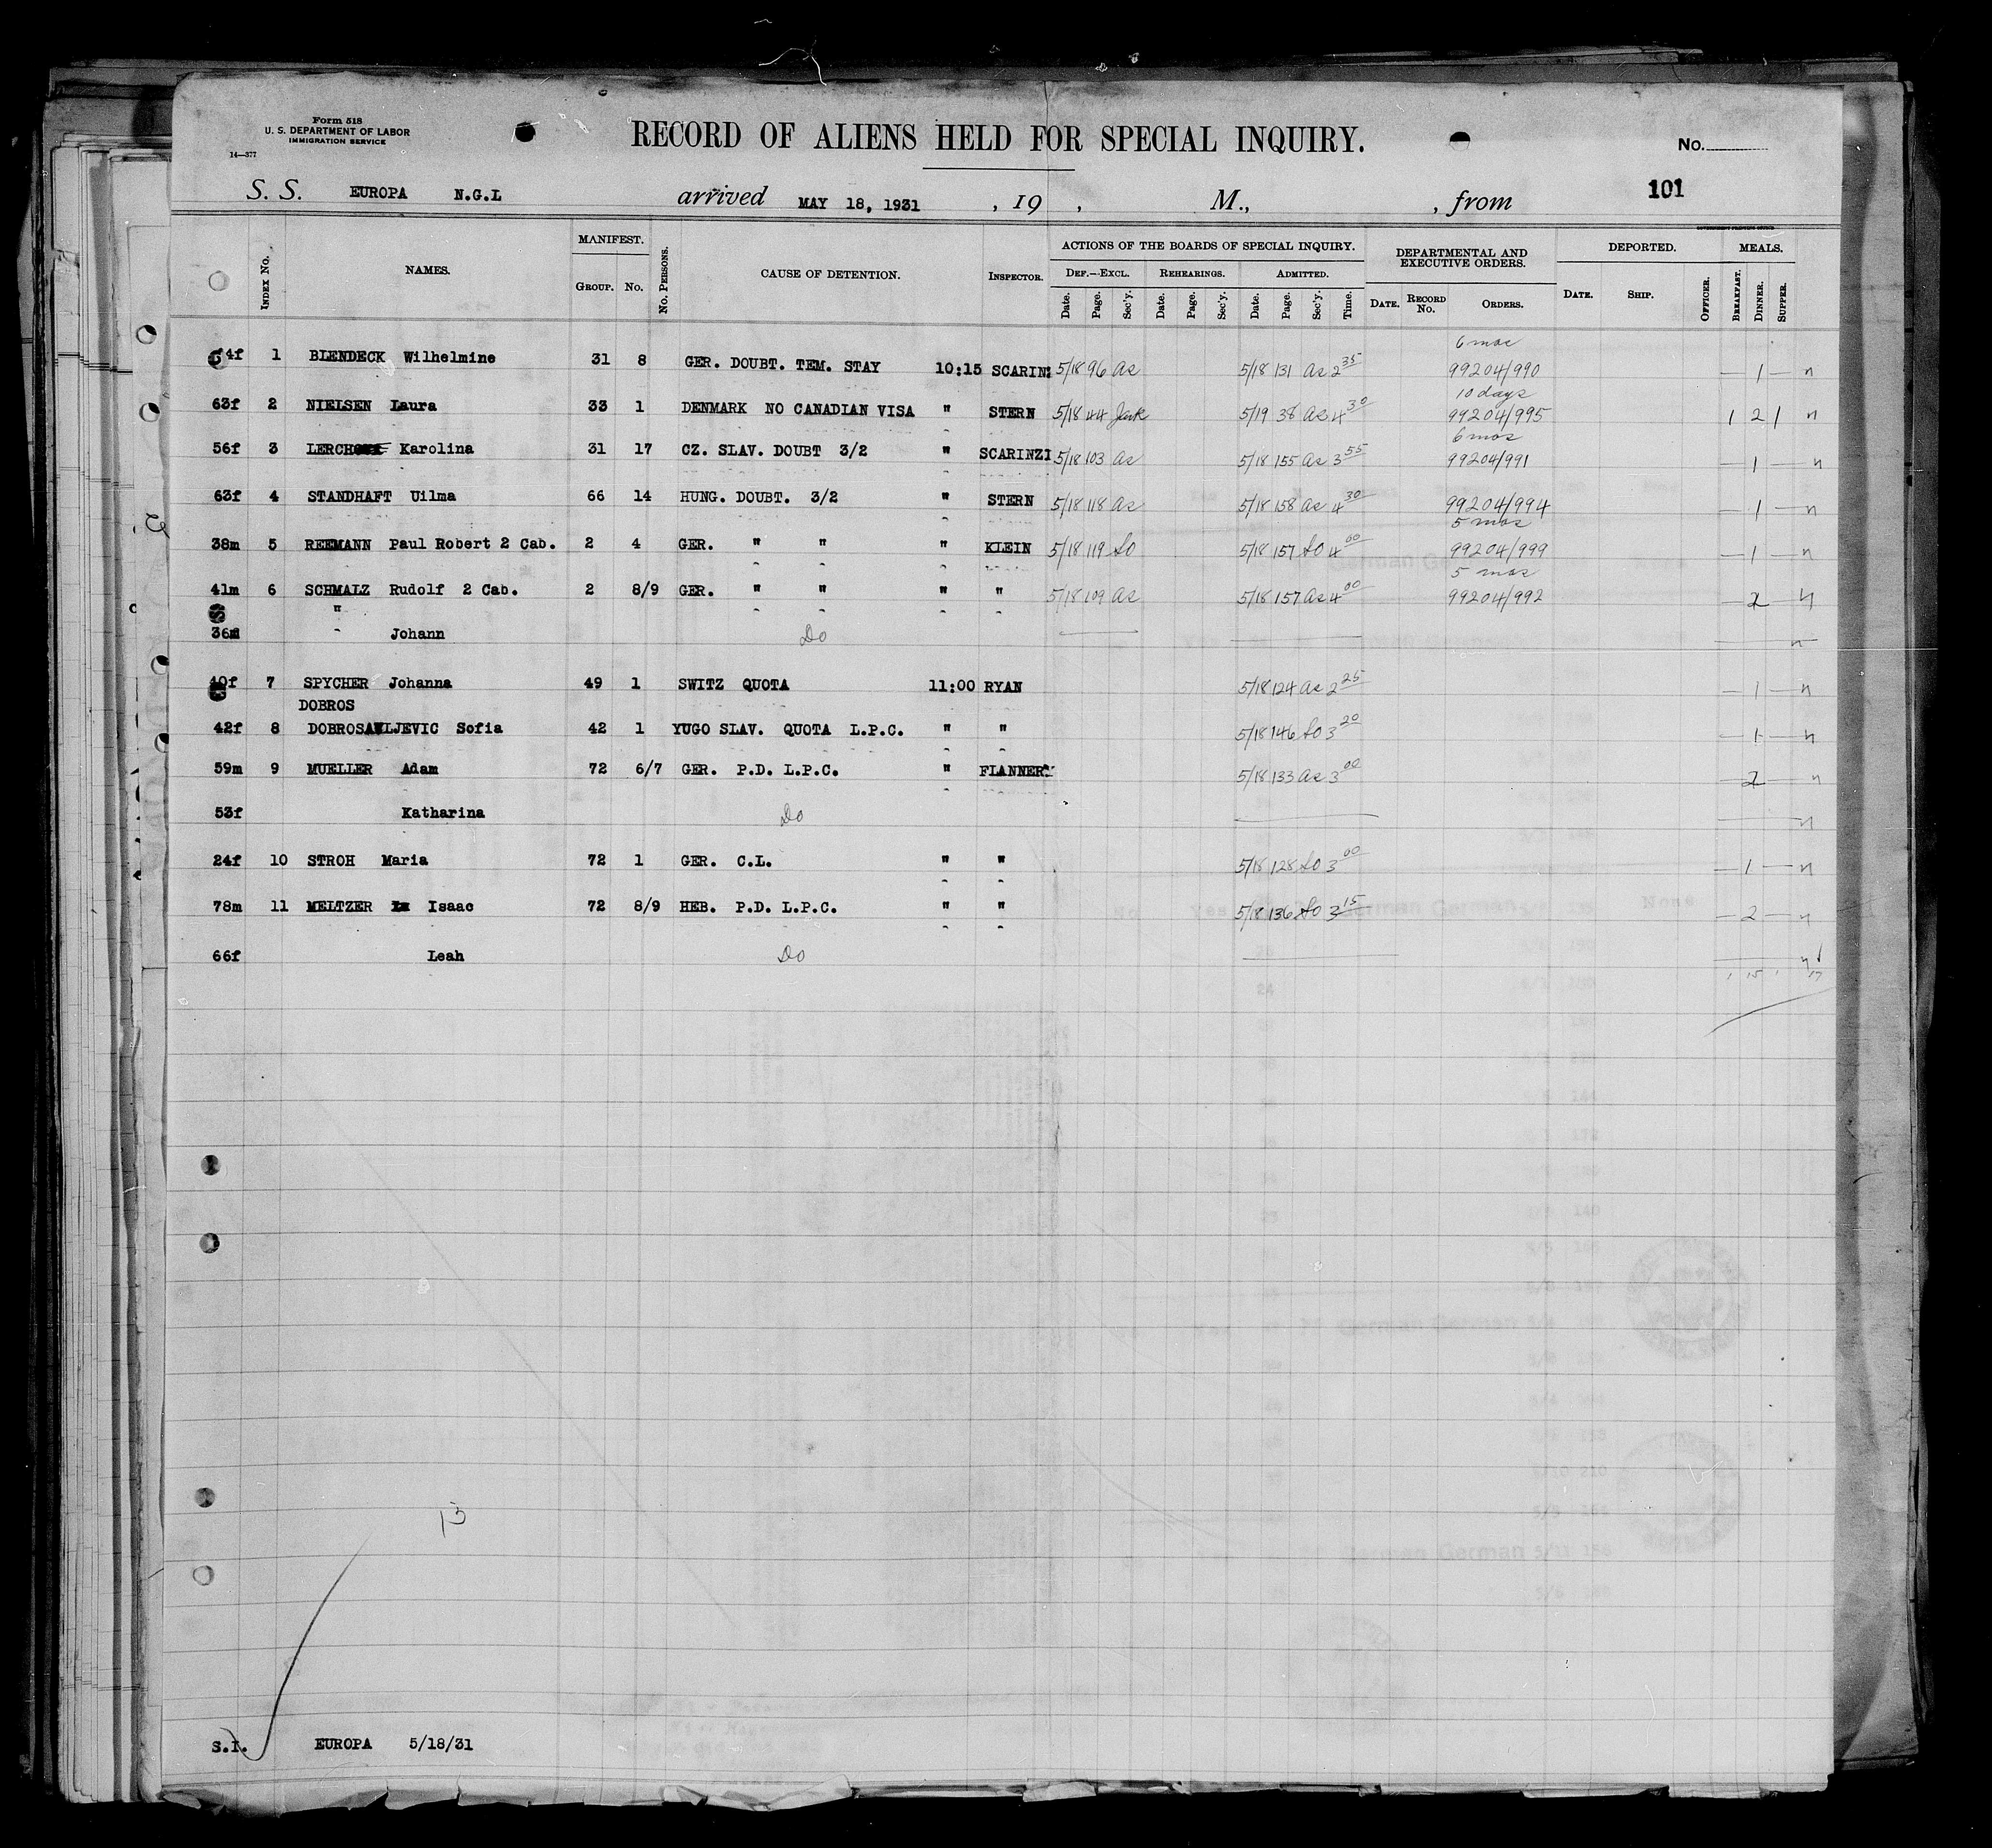 Form 518
U. S. DEPARTMENT OF LABOR
IMMIGRATION SERVICE
14—377
RECORD OF ALIENS HELD FOR SPECIAL INQUIRY.
No.
S. S. EUROPA N.G.L arrived MAY 18, 1931 , 19 , M., , from 101
GOVERNMENT PRINTING OFFICE
INDEX No. NAMES. MANIFEST. GROUP. No. No. PERSONS. CAUSE OF DETENTION. INSPECTOR. ACTIONS OF THE BOARDS OF SPECIAL INQUIRY. DEF.—EXCL. Date. Page. Sec'y. REHEARINGS. Date. Page. Sec'y. ADMITTED. Date. Page. Sec'y. Time. DEPARTMENTAL AND EXECUTIVE ORDERS. DATE. RECORD No. ORDERS. DEPORTED. DATE. SHIP. OFFICER. MEALS. BREAKFAST. DINNER. SUPPER.
6 mos
4f 1 BLENDECK Wilhelmine 31 8 GER. DOUBT. TEM. STAY 10:15 SCARINZ 5/18 96 As 5/18 131 As 2 35 99204/990 — 1 — n
10 days
63f 2 NIELSEN Laura 33 1 DENMARK NO CANADIAN VISA " STERN 5/18 44 5/19 38 As 4 30 99204/995 1 2 1 n
6 mos
56f 3 LERCH Karolina 31 17 CZ. SLAV. DOUBT 3/2 " SCARINZI 5/18 103 As 5/18 155 As 3 55 99204/991 — 1 — n
63f 4 STANDHAFT Uilma 66 14 HUNG. DOUBT. 3/2 " STERN 5/18 118 As 5/18 158 As 4 30 99204/994 — 1 — n
5 mos
38m 5 REEMANN Paul Robert 2 Cab. 2 4 GER. " " " KLEIN 5/18 119 So 5/18 157 So 4 00 99204/999 — 1 — n
5 mos
41m 6 SCHMALZ Rudolf 2 Cab. 2 8/9 GER. " " " " 5/18 109 As 5/18 157 As 4 00 99204/992 — 2 — n
"
36m Johann Do n
40f 7 SPYCHER Johanna 49 1 SWITZ QUOTA 11:00 RYAN 5/18 124 As 2 25 — 1 — n
DOBROS
42f 8 DOBROSAVLJEVIC Sofia 42 1 YUGO SLAV. QUOTA L.P.C. " " 5/18 146 So 3 20 — 1 — n
59m 9 MUELLER Adam 72 6/7 GER. P.D. L.P.C. " FLANNERY 5/18 133 As 3 00 — 2 — n
53f Katharina Do n
24f 10 STROH Maria 72 1 GER. C.L. " " 5/18 128 So 3 00 — 1 — n
78m 11 MELTZER Isaac 72 8/9 HEB. P.D. L.P.C. " " 5/18 136 So 3 15 — 2 — n
66f Leah Do n
1 15 1 17
13
S.I. EUROPA 5/18/31